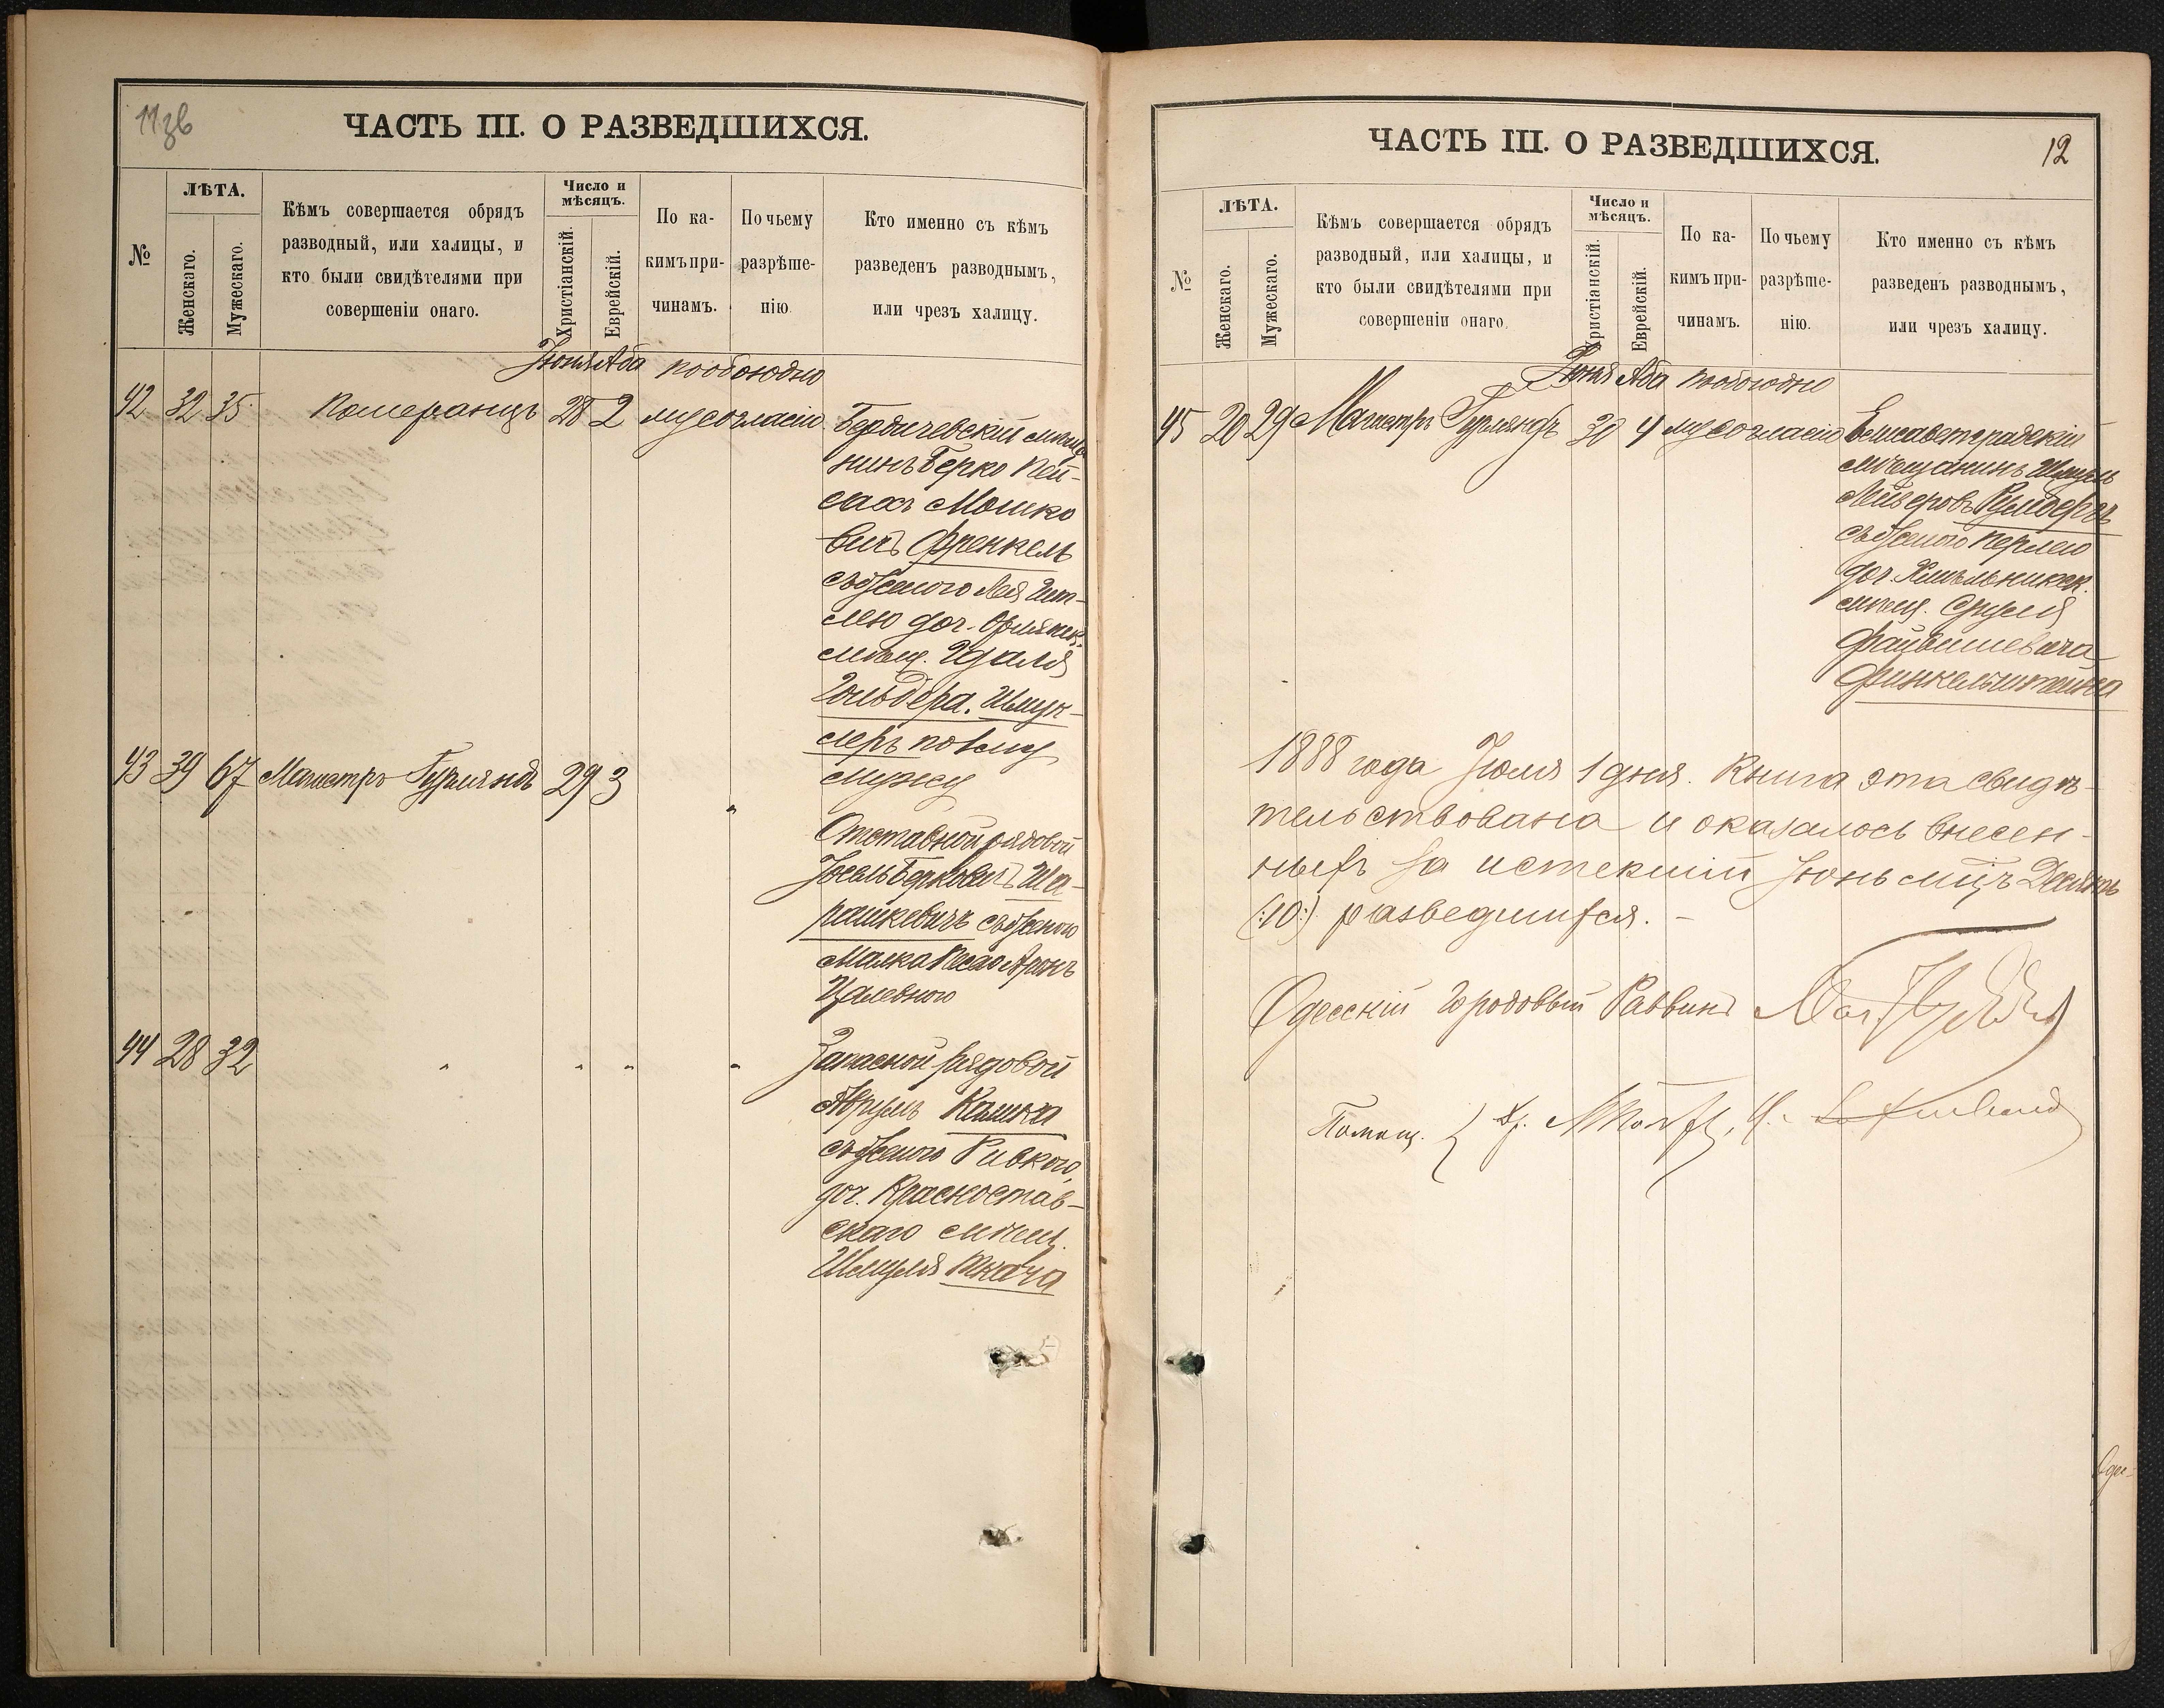 11зв
ЧАСТЬ III. О РАЗВЕДШИХСЯ.
№
ЛѢТА.
Женскаго.
Мужескаго.
Кѣмъ совершается обрядъ
разводный, или халицы, и
кто были свидѣтелями при
совершеніи онаго.
Число и
мѣсяцъ.
Христіанскій.
Еврейскій.
По ка-
кимъ при-
чинамъ.
По чьему
разрѣше-
нію.
Кто именно съ кѣмъ
разведенъ разводнымъ,
или чрезъ халицу.
Іюня Аба пообоюдно
42 32 35 Померанцъ 28 2 му согласію Бердичевскій мѣща
нинъ Берко Пей-
сахъ Мошко
вичъ Френкель
съ женою Лея Ит-
лею доч.
мѣщ. Идаля
Гольдера. Шмук-
леръ по 1 му
мужу
43 39 67 Магистръ Гурляндъ 29 3 "
Отставной рядовой
Іосель Берковичъ Ша-
рашкевичъ съ женою
Малка Песао Аронъ
Цалевною
44 28 32 " " " " Запасной рядовой
Аврумъ Кашка
съ женою Ривкою,
доч. Красностав-
скаго мѣщ.
Шмуля Ткача
12
ЧАСТЬ III. О РАЗВЕДШИХСЯ.
№
ЛѢТА.
Женскаго.
Мужескаго.
Кѣмъ совершается обрядъ
разводный, или халицы, и
кто были свидѣтелями при
совершеніи онаго.
Число и
мѣсяцъ.
Христіанскій.
Еврейскій.
По ка-
кимъ при-
чинамъ.
По чьему
разрѣше-
нію.
Кто именно съ кѣмъ
разведенъ разводнымъ,
или чрезъ халицу.
Іюня Аба пообоюдно
45 20 29 Магистръ Гурляндъ 30 4 му согласію Елисаветградскій
мѣщанинъ Шмуль
Лейзеровъ
съ женою Перлею
доч. Хмѣльникск.
мѣщ. Сруля
Файвишевича
Финкельштейна
1888 года Іюля 1 дня. Книга эта свидѣ-
тельствована и оказалось внесен-
ныхъ за истекшій Іюнь мцъ Десять
(:10:) разведшихся. -
Одесскій Городовый Раввинъ Маг.
Помощ.